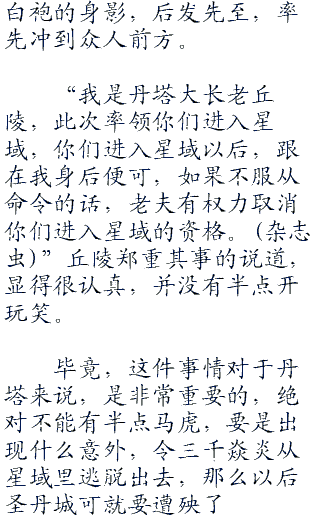 白袍的身影，后发先至，率
先冲到众人前方。
“我是丹塔大长老丘
陵，此次率领你们进入星
域，你们进入星域以后，跟
在我身后便可，如果不服从
命令的话，老夫有权力取消
你们进入星域的资格。(杂志
虫)”丘陵郑重其事的说道，
显得很认真，并没有半点开
玩笑。
毕竟，这件事情对于丹
塔来说，是非常重要的，绝
对不能有半点马虎，要是出
现什么意外，令三千焱炎从
星域里逃脱出去，那么以后
圣丹城可就要遭殃了